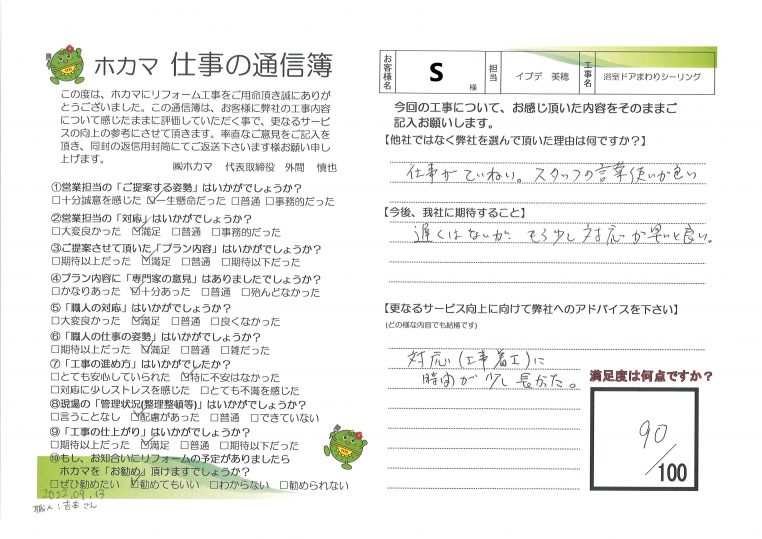 ホカマ 仕事の通信簿
この度は、ホカマにリフォーム工事をご用命頂き誠にありが
とうございました。この通信簿は、お客様に弊社の工事内容
について感じたままに評価していただく事で、更なるサービ
スの向上の参考にさせて頂きます。率直なご意見をご記入を
頂き、同封の返信用封筒にてご返送下さいます様お願い申し
上げます。
㈱ホカマ 代表取締役 外間 慎也
①営業担当の「ご提案する姿勢」はいかがでしょうか?
□十分誠意を感じた ☑一生懸命だった □普通 □事務的だった
②営業担当の「対応」はいかがでしょうか?
□大変良かった ☑満足 □普通 □事務的だった
③ご提案させて頂いた「プラン内容」はいかがでしょうか?
□期待以上だった ☑満足 □普通 □期待以下だった
④プラン内容に「専門家の意見」はありましたでしょうか?
□かなりあった ☑十分あった □普通 □殆んどなかった
⑤「職人の対応」はいかがでしょうか?
□大変良かった ☑満足 □普通 □良くなかった
⑥「職人の仕事の姿勢」はいかがでしょうか?
□期待以上だった ☑満足 □普通 □雑だった
⑦「工事の進め方」はいかがでしたでしょうか?
□とても安心していられた ☑特に不安はなかった
□対応に少しストレスを感じた □とても不満を感じた
⑧現場の「管理状況(整理整頓等)」はいかがでしょうか?
□言うことなし ☑配慮があった □普通 □できていない
⑨「工事の仕上がり」はいかがでしょうか?
□期待以上だった ☑満足 □普通 □期待以下だった
⑩もし、お知合いにリフォームの予定がありましたら
ホカマを「お勧め」頂けますでしょうか?
□ぜひ勧めたい ☑勧めてもいい □わからない □勧められない
2022.09.13
職人:吉本さん
お客様名 S 様 担当 イブデ 美穂 工事名 浴室ドアまわりシーリング
今回の工事について、お感じ頂いた内容をそのままご
記入お願いします。
【他社ではなく弊社を選んで頂いた理由は何ですか?】
仕事がていねい。スタッフの言葉使いが良い
【今後、我社に期待すること】
遅くはないが、もう少し対応が早いと良い。
【更なるサービス向上に向けて弊社へのアドバイスを下さい】
(どの様な内容でも結構です)
対応(工事着工)に
時間が少し長かった。
満足度は何点ですか?
90
/100